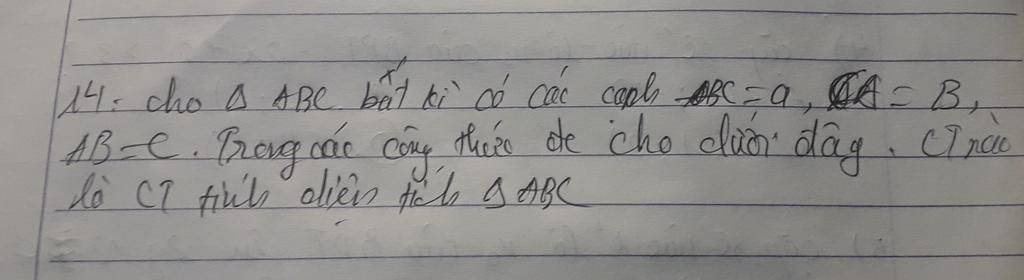 14: cho Δ ABC bất kì có các cạnh BC = a, CA = B,
AB = C. Trong các công thức đc cho dưới đây. CT nào
là CT tính diện tích Δ ABC